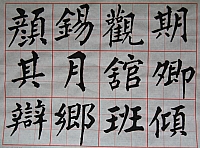 顏錫觀期
其月舘卿
辯鄉班傾